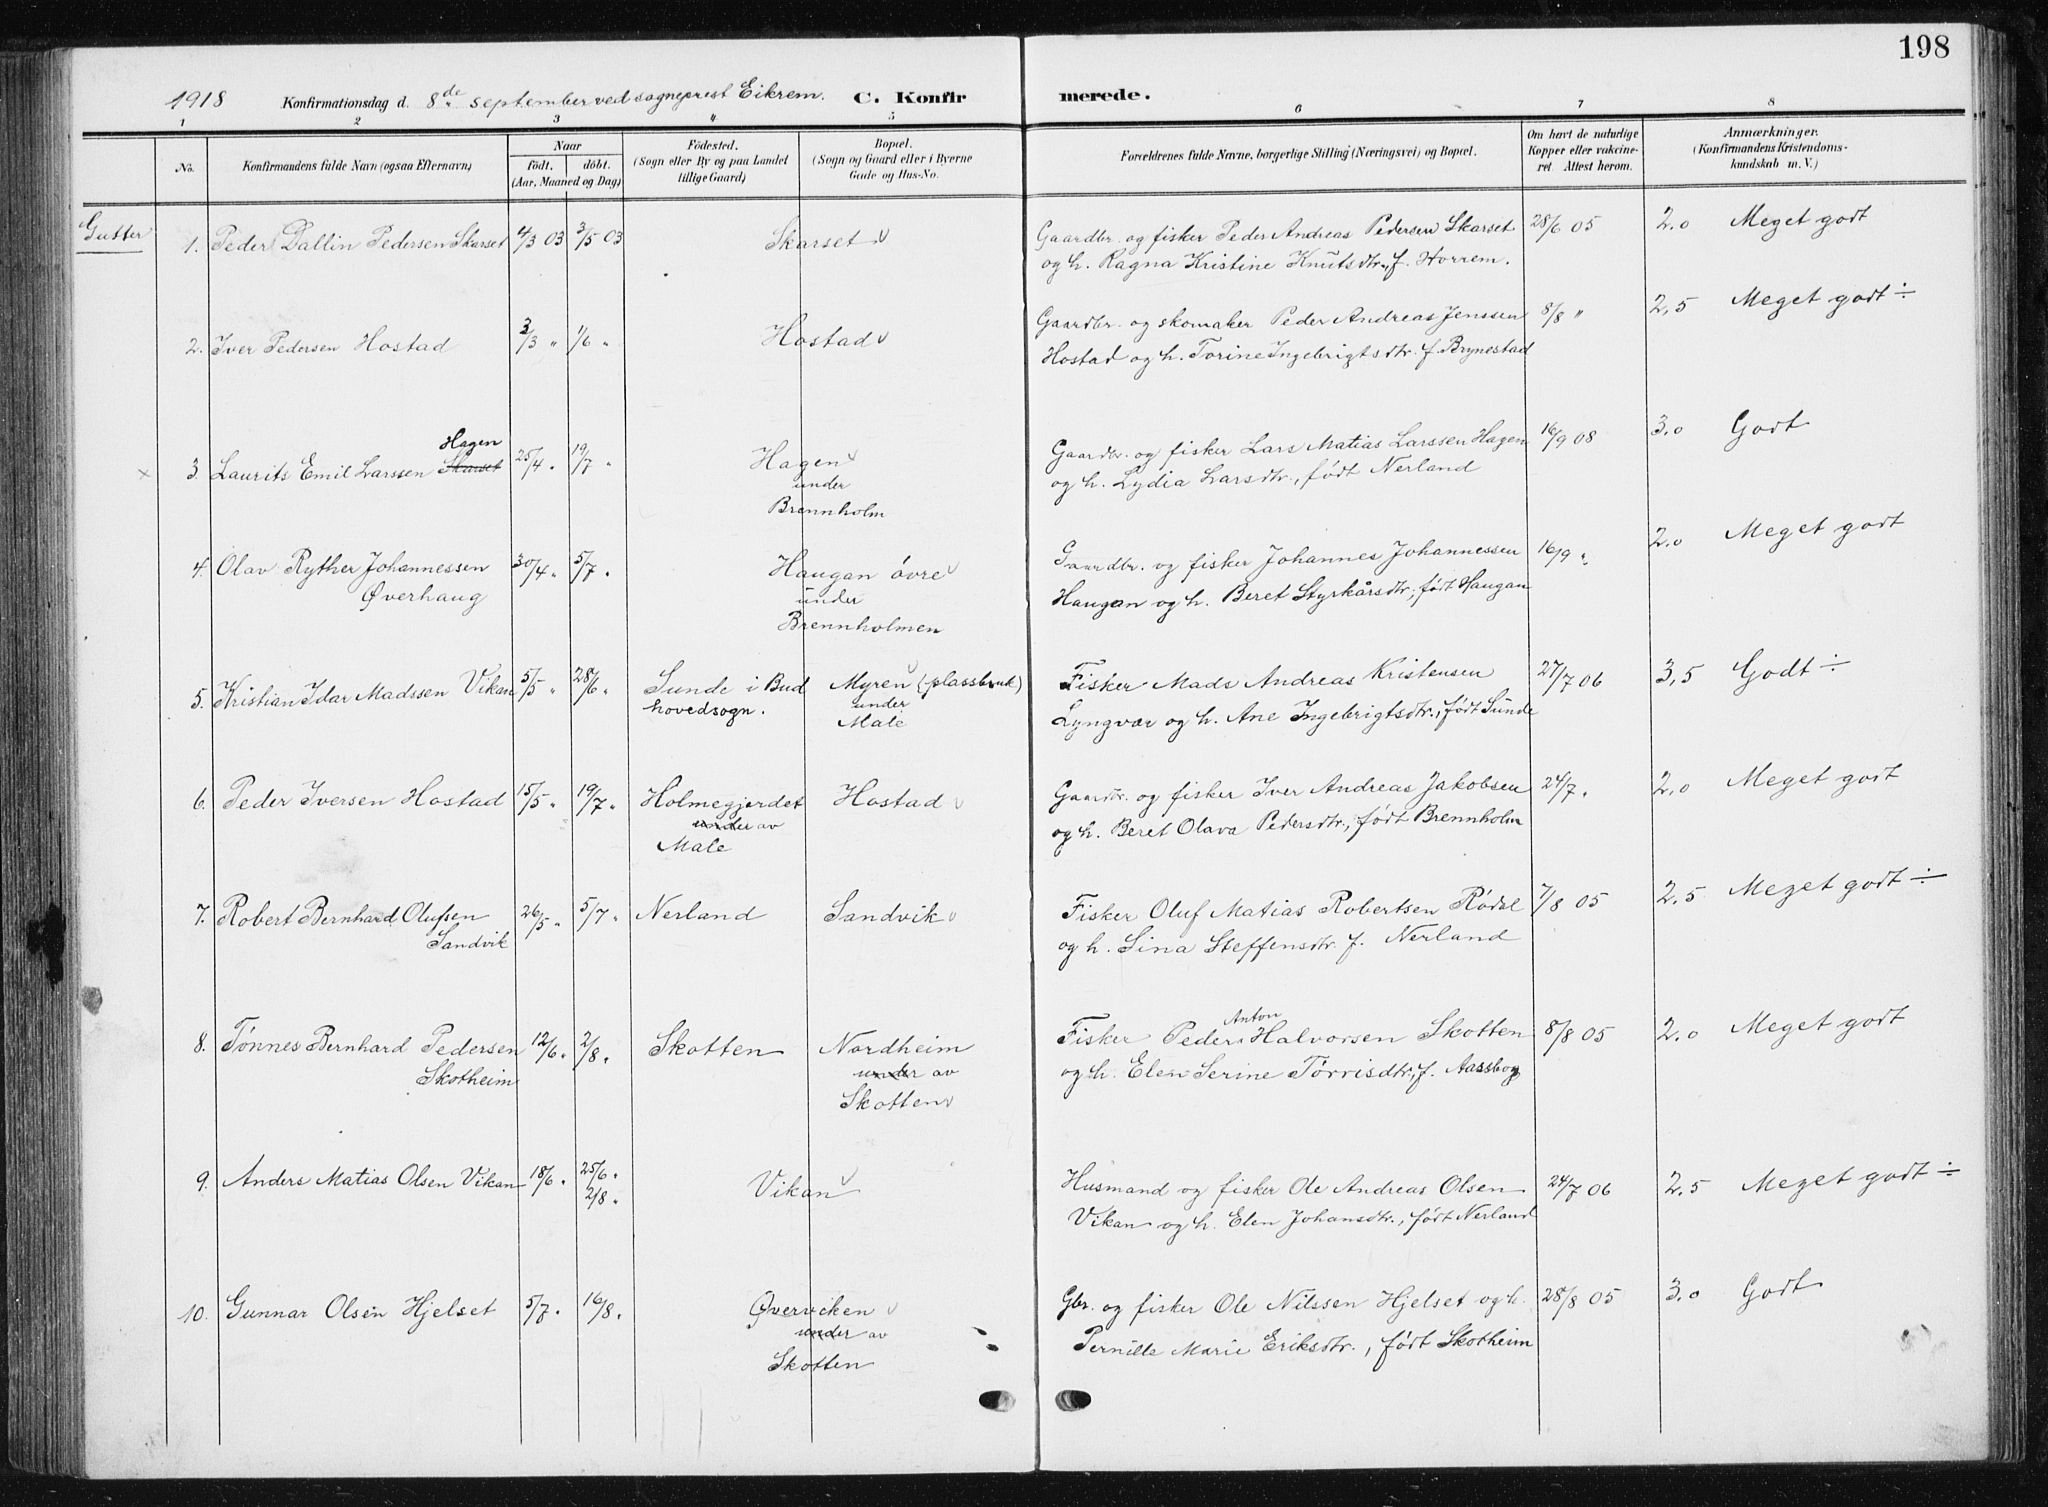 198
1918 Konfirmationsdag d. 8de september ved sogneprest Eikrem. C. Konfirmerede.
1 2 3 4 5 6 7 8
No.
Konfirmandens fulde Navn (ogsaa Efternavn)
Naar
født. døbt.
(Aar, Maaned og Dag)
Fødested.
(Sogn eller By og paa Landet
tillige Gaard)
Bopæl.
(Sogn og Gaard eller i Byerne
Gade og Hus-No.
Forældrenes fulde Navne, borgerlige Stilling (Næringsvei) og Bopæl.
Om havt de naturlige
Kopper eller vakcine-
ret. Attest herom.
Anmærkninger.
(Konfirmandens Kristendoms-
kundskab m. V.)
Gutter
1. Peder Dallin Pedersen Skarset 4/3 03 3/5 03 Skarset Gaardbr. og fisker Peder Andreas Pedersen Skarset 28/6 05 2.0 Meget godt
og h. Ragna Kristine Knutsdtr., f. Horrem.
2. Iver Pedersen Hostad 3/3 " 1/6 " Hostad Gaardbr. og skomaker Peder Andreas Jenssen 8/8 " 2,5 Meget godt ÷
Hostad og h. Torine Ingebrigtsdtr. f. Brynestad
Hagen
× 3. Laurits Emil Larssen Skarset 25/4 " 19/7 " Hagen Gaardbr. og fisker Lars Matias Larssen Hagen 16/9 08 3.0 Godt
under og h. Lydia Larsdtr., født Nerland
Brennholm
4. Olav Ryther Johannessen 30/4 " 5/7 " Haugan øvre Gaardbr. og fisker Johannes Johannessen 16/9 " 2.0 Meget godt
Øverhaug under Haugan og h. Beret Styrkårsdtr., født Haugan
Brennholmen
5. Kristian Idar Madssen Vikan 5/5 " 28/6 " Sunde i Bud Myren (plassbruk) Fisker Mads Andreas Kristensen 27/7 06 3,5 Godt ÷
hovedsogn. under Lyngvær og h. Ane Ingebrigtsdtr., født Sunde
Male
6. Peder Iversen Hostad 15/5 " 19/7 " Holmegjerdet Hostad Gaardbr. og fisker Iver Andreas Jakobsen 24/7 " 2.0 Meget godt
under av og h. Beret Olava Pedersdtr., født Brennholm
Male
7. Robert Bernhard Olufsen 26/5 " 5/7 " Nerland Sandvik Fisker Oluf Matias Robertsen Rødal 7/8 05 2.5 Meget godt ÷
Sandvik og h. Sina Steffensdtr. f. Nerland
Anton
8. Tønnes Bernhard Pedersen 12/6 " 2/8 " Skotten Nordheim Fisker Peder Halvorsen Skotten 8/8 05 2.0 Meget godt
Skotheim under av og h. Elen Serine Tørrisdtr., f.
Skotten
9. Anders Matias Olsen Vikan 18/6 " 25/6 " Vikan Husmand og fisker Ole Andreas Olsen 24/7 06 2.5 Meget godt ÷
2/8 " Vikan og h. Elen Johansdtr., født Nerland
10. Gunnar Olsen Hjelset 5/7 " 16/8 " Øverviken Gbr. og fisker Ole Nilssen Hjelset og h. 28/8 05 3.0 Godt
under av Pernille Marie Eriksdtr., født Skotheim
Skotten